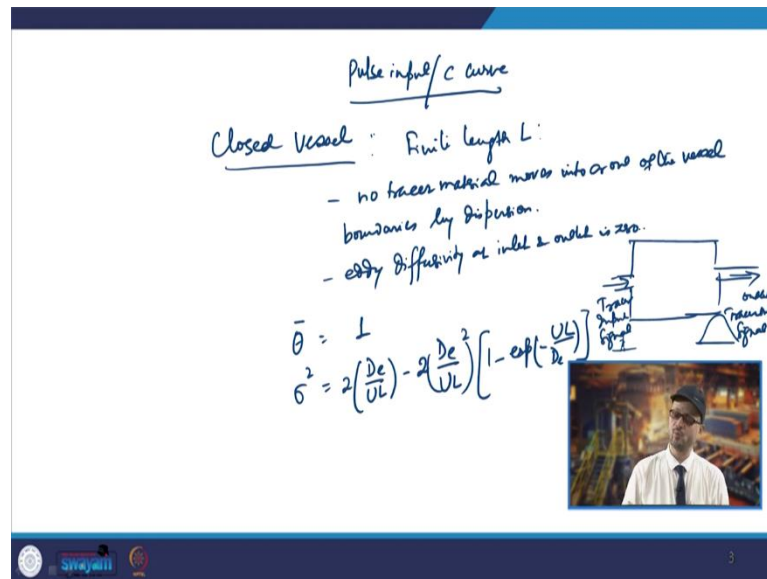 Pulse input/C curve
Closed Vessel : Finite length L:
- no tracer material moves into or out of the vessel
boundaries by dispersion.
- eddy diffusivity at inlet & outlet is zero.
Tracer
Input
Signal
outlet
Tracer
Signal
θ̄ = 1
σ² = 2(De/UL) - 2(De/UL)² [1 - exp(-UL/De)]
swayam
3